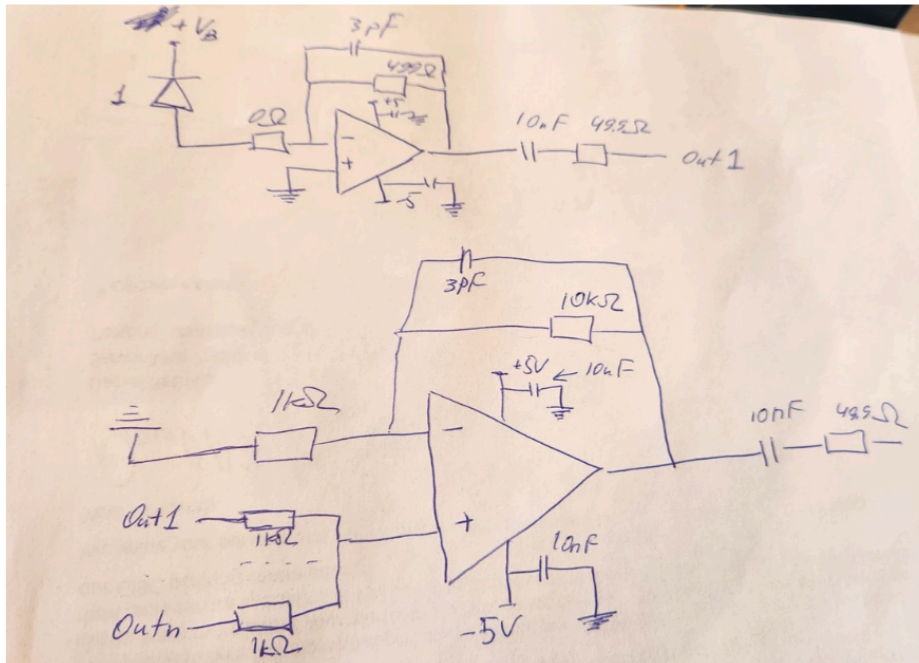 + VB
3pF
1
499Ω
0Ω
+5
10nF
49.9Ω
Out1
-
+
-5
3pF
10kΩ
+5V
10nF
1kΩ
10nF
49.9Ω
-
Out1
1kΩ
+
10nF
Outn
1kΩ
-5V